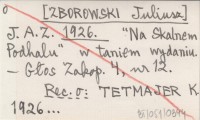 [ZBOROWSKI Juliusz]
J. A. Z. 1926. "Na Skalnem
Podhalu" w taniem wydaniu
– Głos Zakop. 4, nr 12.
Rec. o: TETMAJER K.
1926...